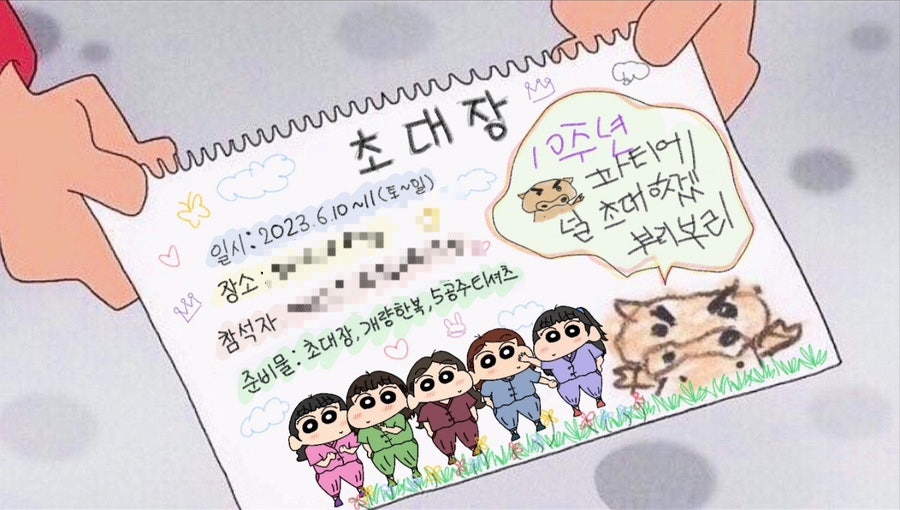 초대장
일시: 2023. 6. 10 ~ 11 (토~일)
장소:
참석자
준비물: 초대장, 개량한복, 5공주티셔츠
10주년
파티에
널 초대하겠
부리부리